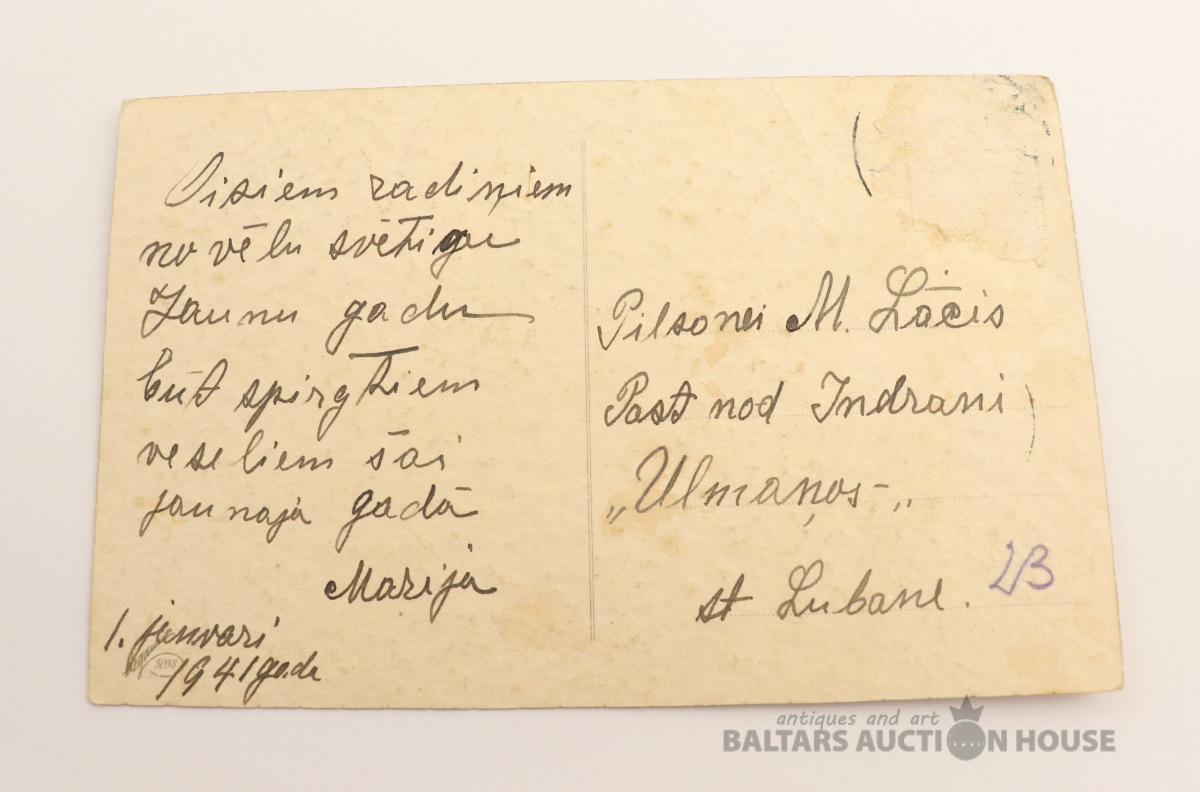 Visiem radiņiem
no vēlu svētigu
Jaunu gadu
būt spirgtiem
veseliem šai
jaunajā gadā
Marija
1. janvari
1941 goda
5058
Pilsonei M. Lācis
Past nod Indrani
„Ulmaņos-„
st Lubane.
23
antiques and art
BALTARS AUCTION HOUSE